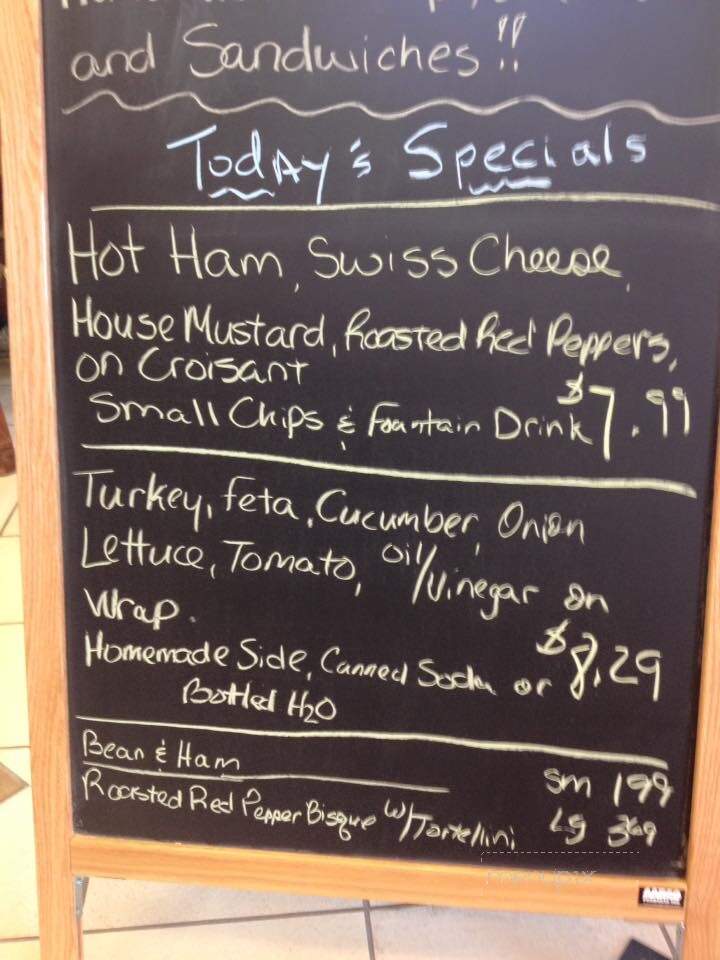 and Sandwiches!!
Today's Specials
Hot Ham, Swiss Cheese,
House Mustard, Roasted Red Peppers,
on Croisant
Small Chips & Fountain Drink $7.99
Turkey, feta, Cucumber, Onion
Lettuce, Tomato, oil/Vinegar on
Wrap.
Homemade Side, Canned Soda or $8.29
Bottled H2O
Bean & Ham sm 199
Roasted Red Pepper Bisque w/Tortellini Lg 369